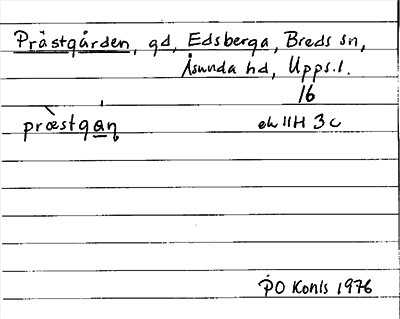 Prästgården, gd, Edsberga, Breds sn,
Åsunda hd, Upps.l.
16
præ̀stga̲ṇ
ek 11H 3c
PO Konls 1976